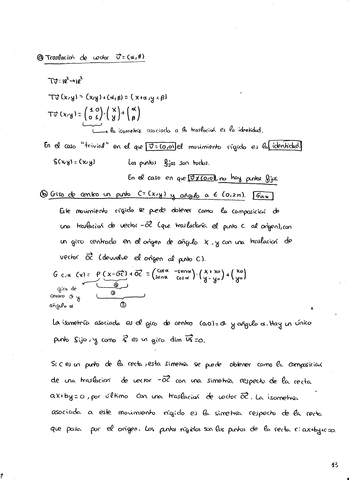 ⓐ Traslación de vector v⃗ = (α,β)
Tv⃗: ℝ²→ℝ²
Tv⃗ (x,y) = (x,y)+(α,β) = (x+α, y+β)
Tv⃗ (x,y) = (1 0 / 0 1)·(x / y)+(α / β)
la isometría asociada a la traslación es la identidad.
En el caso "trivial" en el que v⃗ = (0,0) el movimiento rígido es la identidad
f(x,y) = (x,y) Los puntos fijos son todos.
En el caso en que v⃗ ≠ (0,0), no hay puntos fijos.
ⓑ Giro de centro un punto C = (x,y) y ángulo α ∈ (0,2π).
Este movimiento rígido se puede obtener como la composición de
una traslación de vector -OC⃗ (que trasladaría el punto C al origen), con
un giro centrado en el origen de ángulo x, y con una traslación de
vector OC⃗ (devuelve el origen al punto C).
G c,α (x) = P (x-OC⃗)+OC⃗ = (cosα -senα / senα cosα)·(x+x₀ / y-y₀)+(x₀ / y₀)
giro de
centro y
ángulo α
①
La isometría asociada es el giro de centro (0,0) = O y ángulo α. Hay un único
punto fijo, y como es un giro dim
Si C es un punto de la recta, esta simetría se puede obtener como la composición
de una traslación de vector -OC⃗ con una simetría respecto de la recta
ax+by=0, por último con una traslación de vector OC⃗. La isometría
asociada a este movimiento rígido es la simetría respecto de la recta
que pasa por el origen. Los puntos rígidos son los puntos de la recta r: ax+by+c=0.
13